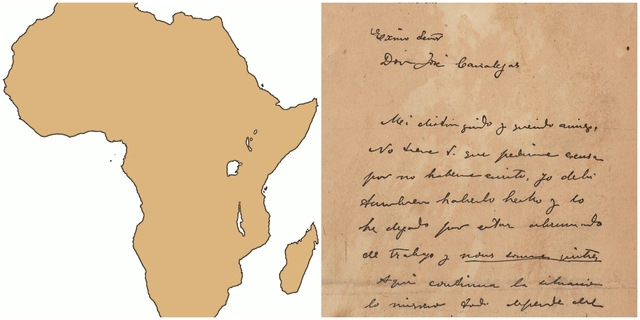 Exmo Señor
Don José Canalejas
Mi distinguido y querido amigo,
No tiene V. que pedirme excusa
por no haberme escrito, yo debí
tambien haberlo hecho y lo
he dejado por estar abrumado
de trabajo y nous sommes quittes
Aquí continua la situacion
lo mismo todo depende del